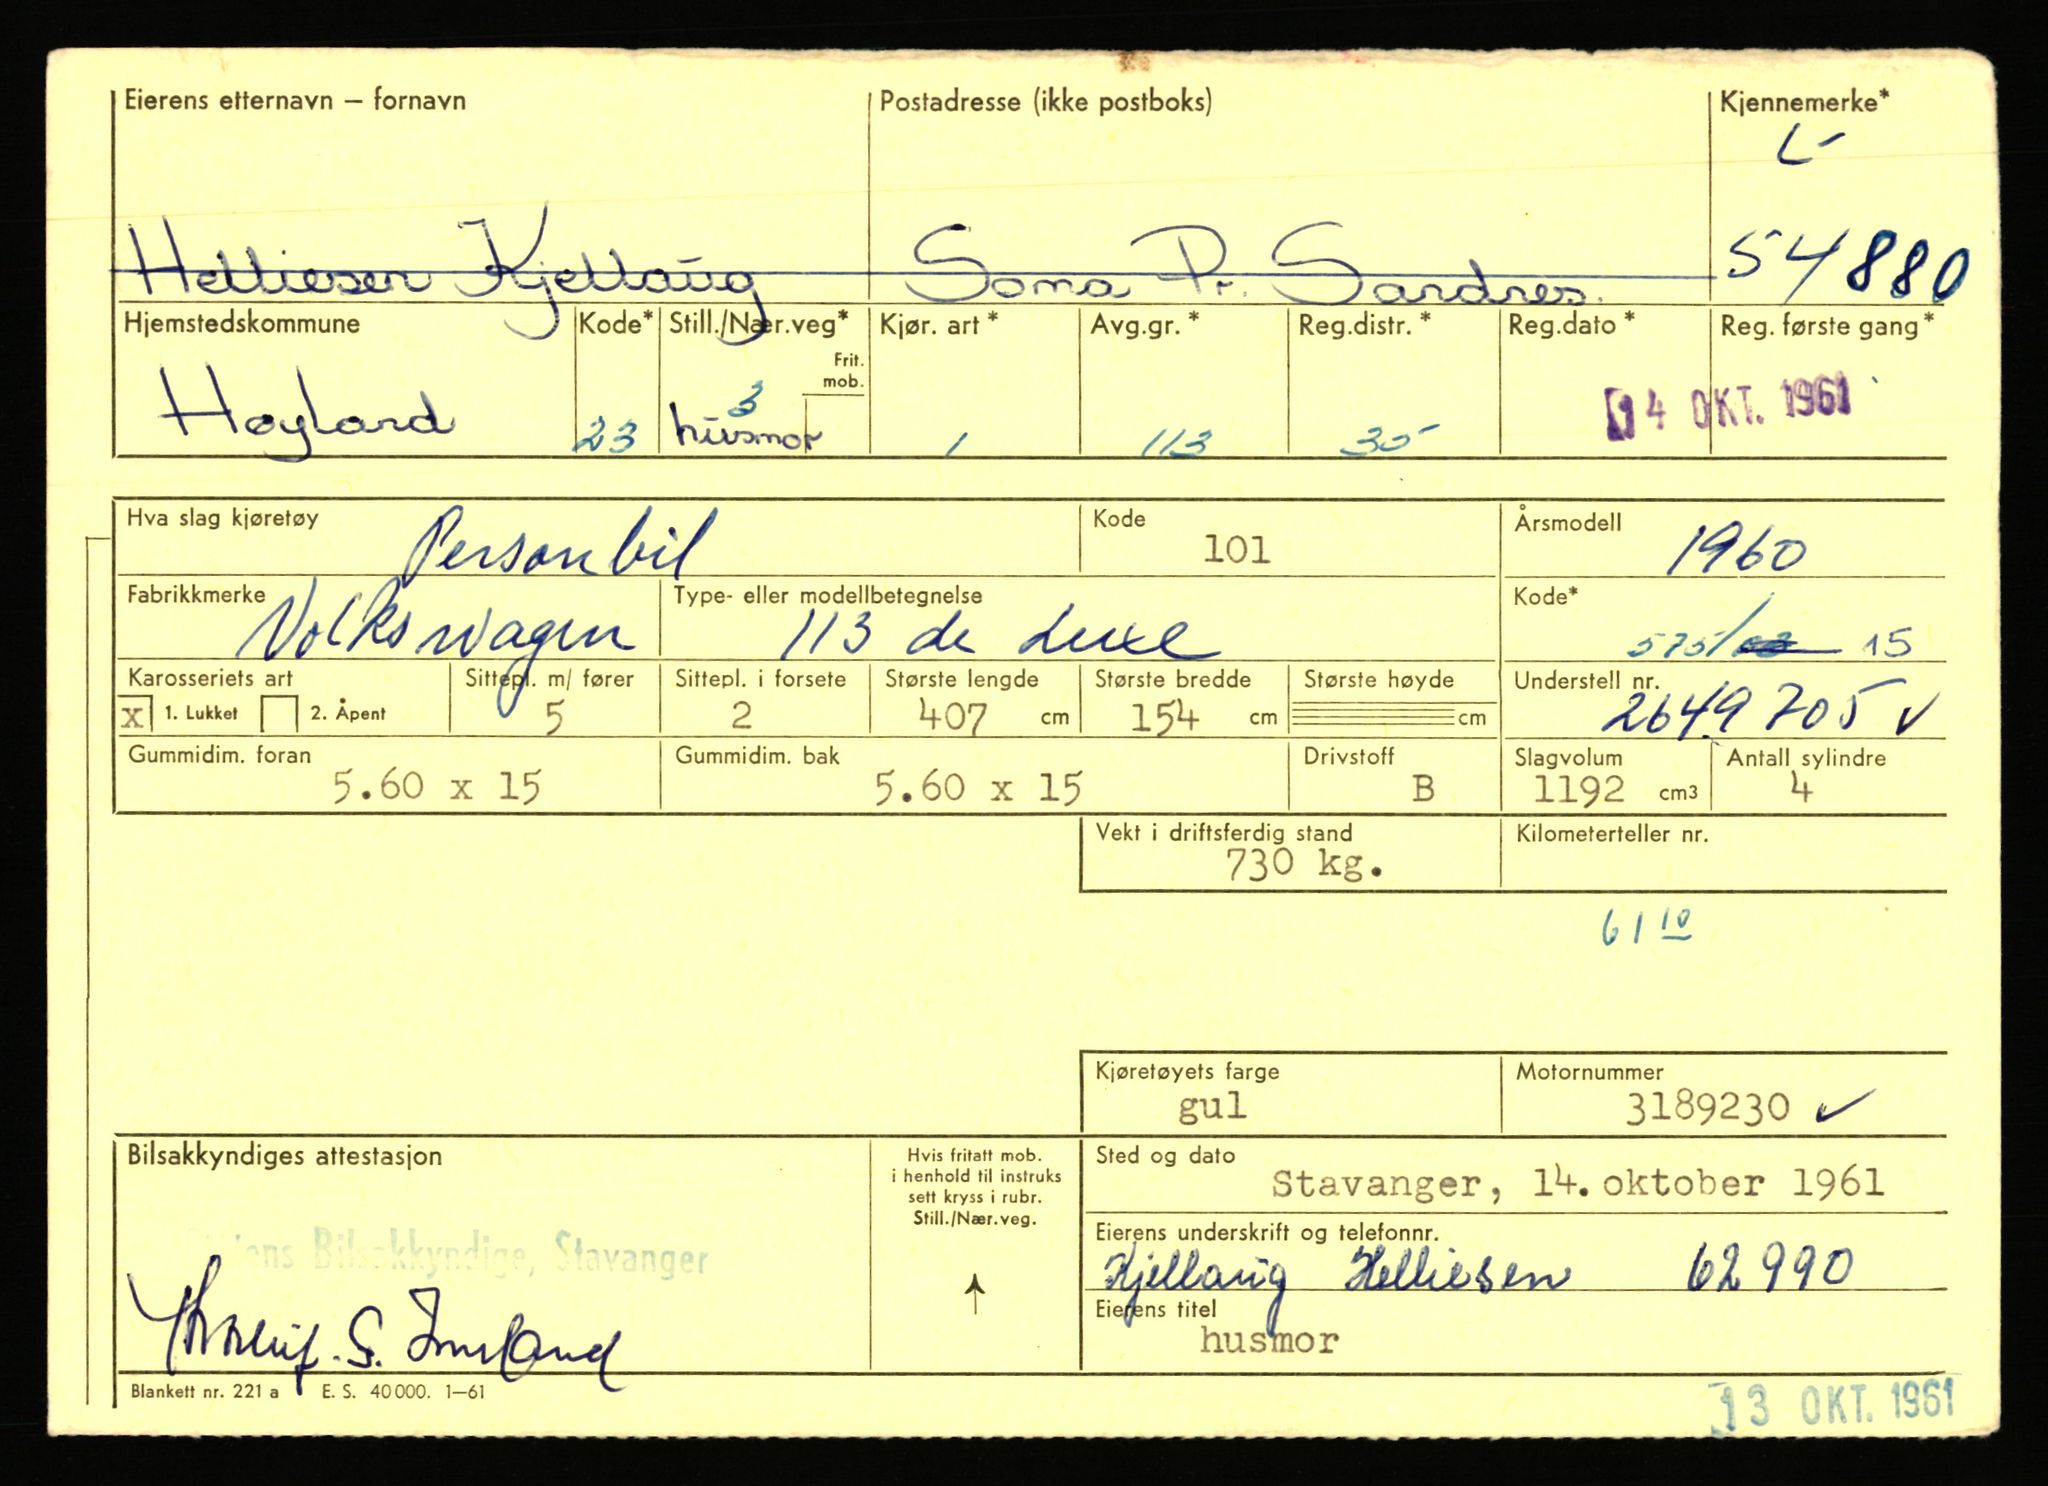 Eierens etternavn – fornavn Postadresse (ikke postboks) Kjennemerke*
L-
Helliesen Kjellaug Soma Pr. Sandnes. 54880
Hjemstedskommune Kode* Still./Nær.veg* Kjør. art * Avg.gr. * Reg.distr. * Reg.dato * Reg. første gang *
Frit.
mob.
3
Høyland 23 husmor 1 113 35 14 OKT. 1961
Hva slag kjøretøy Personbil Kode 101 Årsmodell 1960
Fabrikkmerke Volkswagen Type- eller modellbetegnelse 113 de Luxe Kode* 575/ 15
Karosseriets art Sittepl. m/ fører Sittepl. i forsete Største lengde Største bredde Største høyde Understell nr.
x 1. Lukket 2. Åpent 5 2 407 cm 154 cm cm 2649705 ✓
Gummidim. foran Gummidim. bak Drivstoff Slagvolum Antall sylindre
5.60 x 15 5.60 x 15 B 1192 cm3 4
Vekt i driftsferdig stand Kilometerteller nr.
730 kg.
61 10
Kjøretøyets farge Motornummer
gul 3189230 ✓
Bilsakkyndiges attestasjon
Hvis fritatt mob.
i henhold til instruks
sett kryss i rubr.
Still./Nær.veg.
Sted og dato
Stavanger, 14. oktober 1961
Eierens underskrift og telefonnr.
Bilsakkyndige, Stavanger
Kjellaug Helliesen 62990
Eierens titel
husmor
Blankett nr. 221 a E. S. 40 000. 1–61
13 OKT. 1961